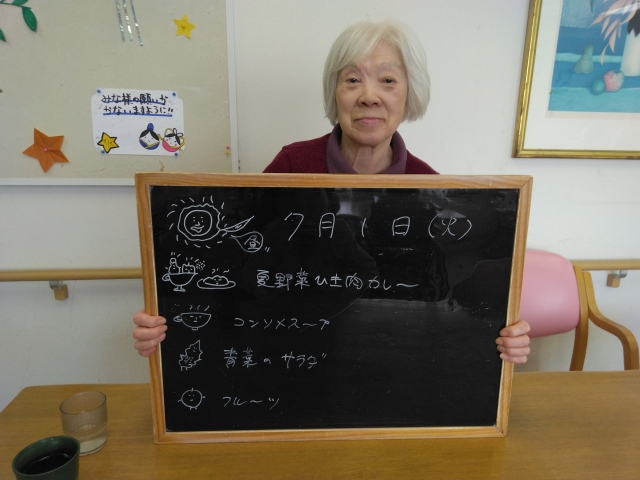 みな様の願いが
かないますように!!
7月1日(火)
昼
夏野菜ひき肉カレー
コンソメスープ
青菜のサラダ
フルーツ